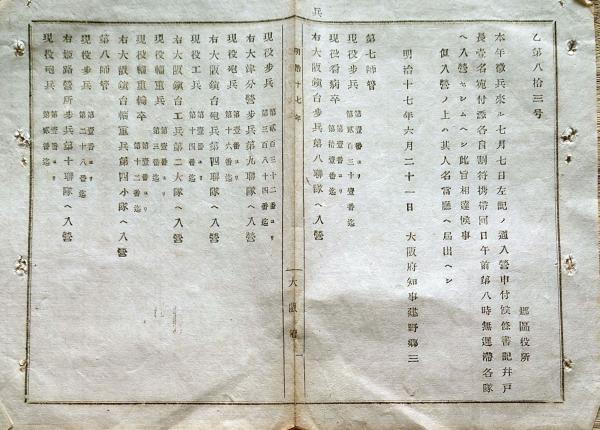 乙第八拾三号
郡區役所
本年徴兵來ル七月七日左記ノ通入營申付候條書記幷戸
長壹名宛付添各自割符携帶同日午前第八時無遲滯各隊
ヘ入營セシムヘシ此旨相達候事
但入營ノ上ハ其人名當廳ヘ届出ヘシ
明治十七年六月二十一日 大阪府知事建野郷三
第七師管
現役步兵 第壹番ヨリ 第貳百三十壹番迄
現役看病卒 第壹番ヨリ 第拾番迄
右大阪鎭台步兵第八聯隊ヘ入營
兵
明治十七年
大阪府
現役步兵 第貳百三十二番ヨリ 第三百八十四番迄
右大津分營步兵第九聯隊ヘ入營
現役砲兵 第壹番ヨリ 第十六番迄
右大阪鎭台砲兵第四聯隊ヘ入營
現役工兵 第壹番ヨリ 第貳十番迄
右大阪鎭台工兵第二大隊ヘ入營
現役輜重兵 第壹番ヨリ 第三番迄
現役輜重輸卒 第壹番ヨリ 第拾壹番迄
右大阪鎭台輜重兵第四小隊ヘ入營
第八師管
現役步兵 第壹番ヨリ 第二十八番迄
右姫路營所步兵第十聯隊ヘ入營
現役砲兵 第壹番ヨリ 第貳番迄